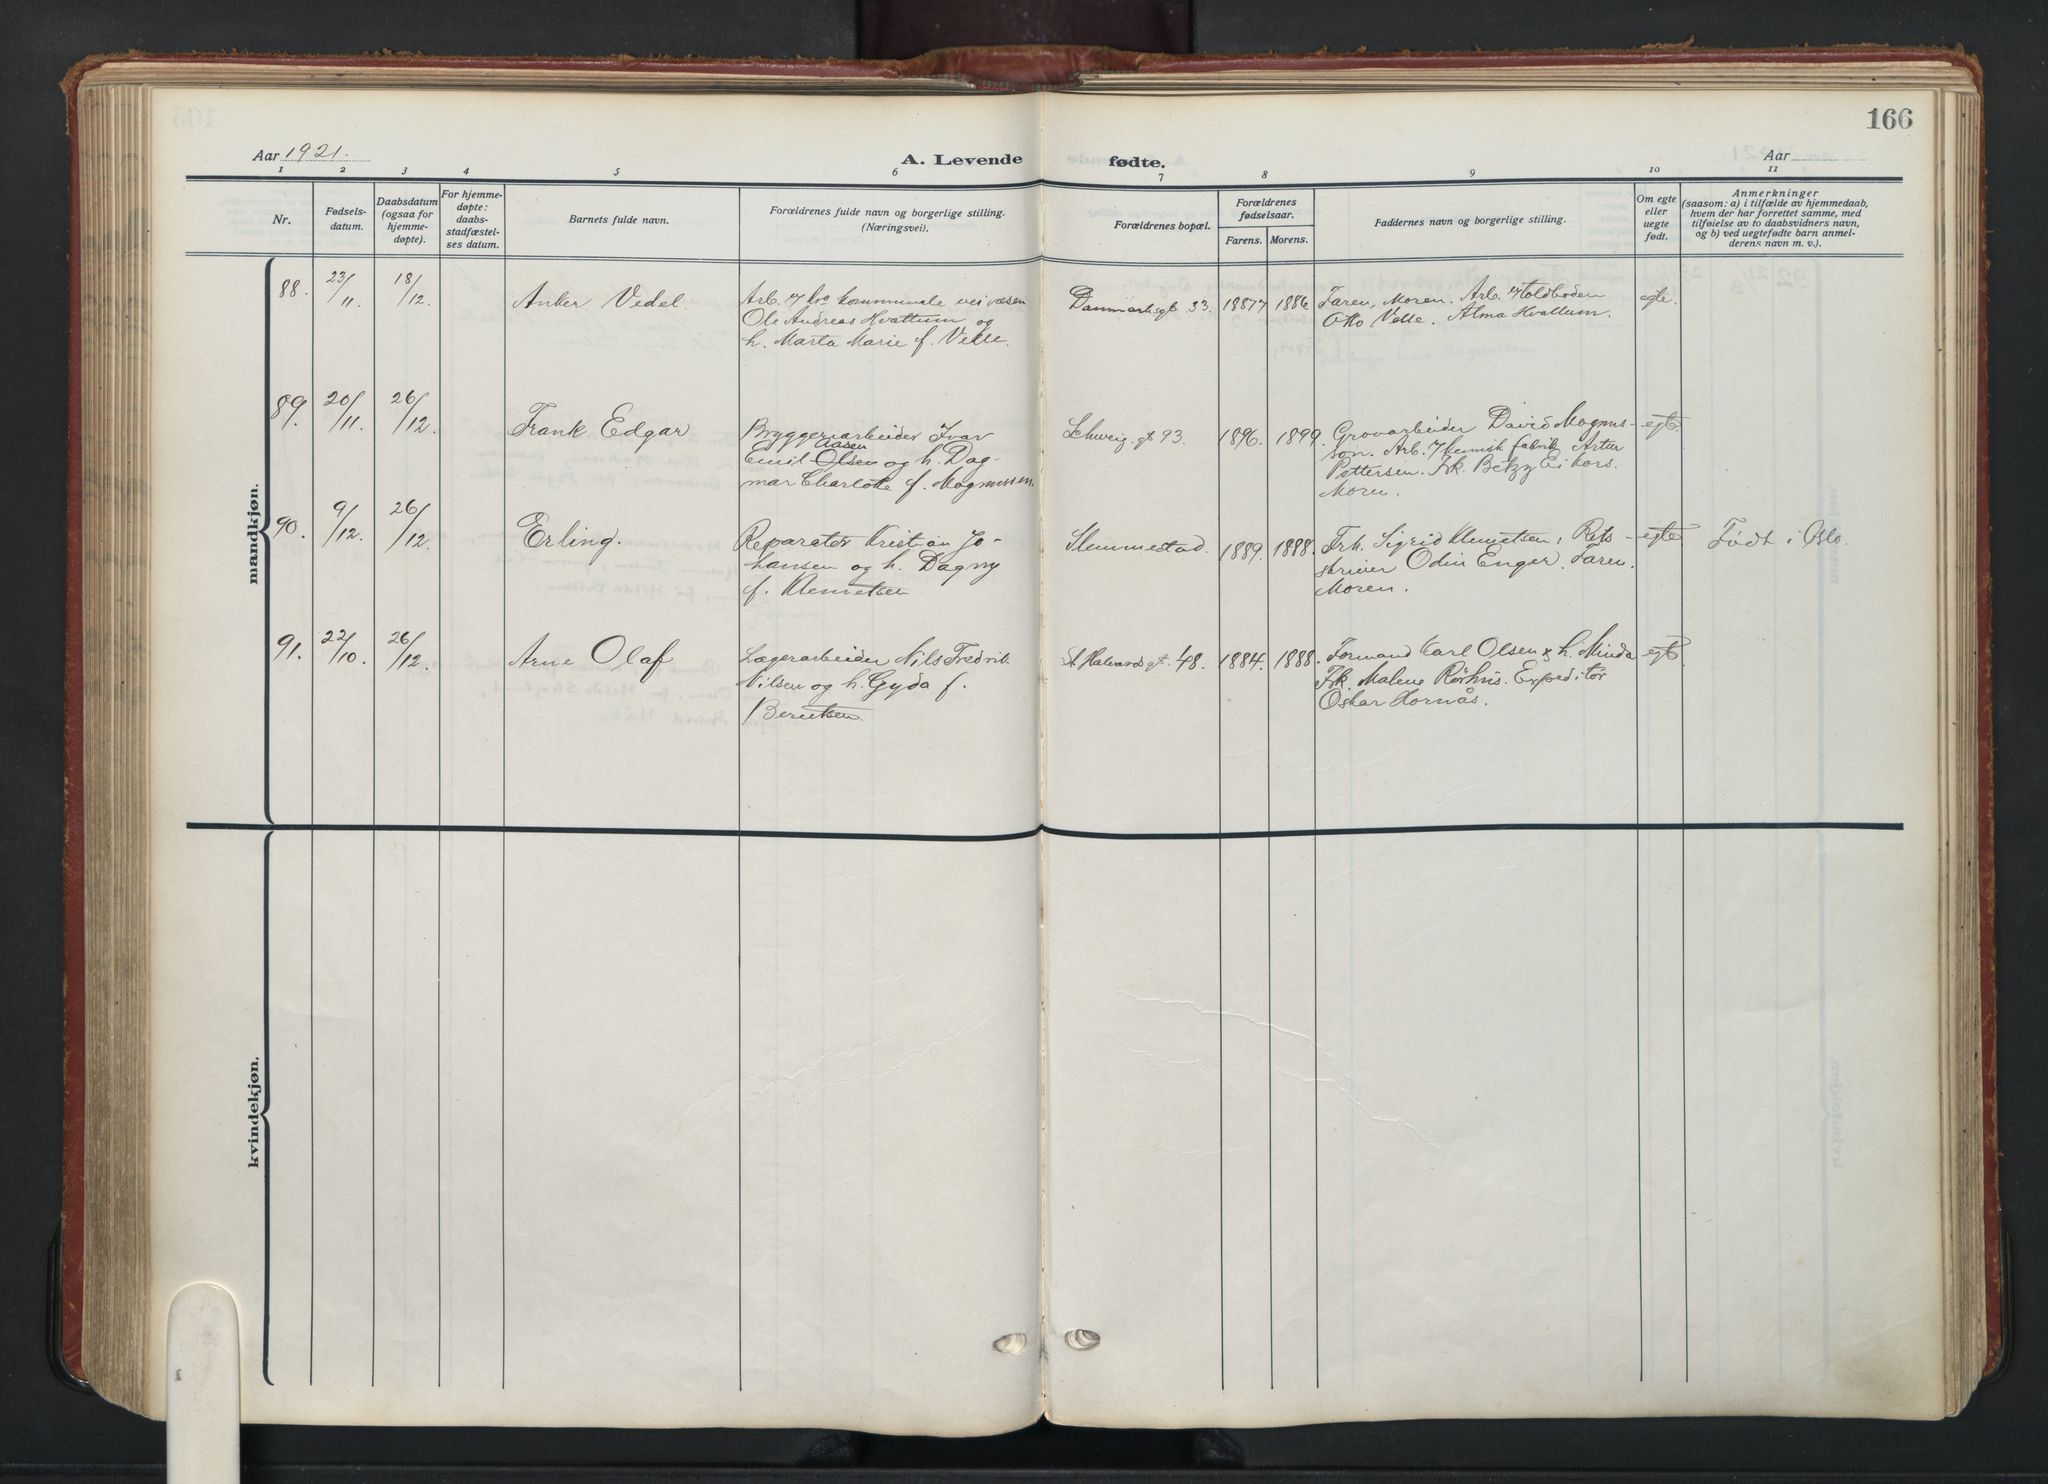 166
Aar 1921.
A. Levende fødte.
Aar
1 2 3 4 5 6 7 8 9 10 11
Nr.
Fødsels-
datum.
Daabsdatum
(ogsaa for
hjemme-
døpte).
For hjemme-
døpte:
daabs-
stadfæstel-
ses datum.
Barnets fulde navn.
Forældrenes fulde navn og borgerlige stilling.
(Næringsvei).
Forældrenes bopæl.
Forældrenes
fødselsaar.
Farens. Morens.
Faddernes navn og borgerlige stilling.
Om egte
eller
uegte
født.
Anmerkninger
(saasom: a) i tilfælde av hjemmedaab,
hvem der har forrettet samme, med
tilføielse av to daabsvidners navn,
og b) ved uegtefødte barn anmel-
derens navn m. v.).
mandkjøn.
88. 23/11 18/12
Anker Vedel
Arb. v/ Kra kommunale veivæsen
Ole Andreas Hvattum og
h. Marta Marie f. Velle.
Danmarksgt 33. 1887 1886
Faren, Moren. Arb. v/ Toldboden
Otto Velle. Alma Hvattum.
egte.
89. 20/11. 26/12.
Frank Edgar
Bryggeriarbeider Ivar
Aasen
Emil Olsen og h. Dag-
mar Charlotte f. Magnussen.
Schweig. gt 93. 1896. 1899.
Grovarbeider David Magnus-
son. Arb. v/ Kemisk fabrik Artur
Pettersen. Frk. Betzy
Moren.
egte.
90. 9/12. 26/12.
Erling.
Reparatør Kristian Jo-
hansen og h. Dagny
f. Klemetsen
Slemmestad. 1889. 1888.
Frk. Sigrid Klemetsen, Rets-
skriver Odin Enger. Faren.
Moren.
egte
Født i Oslo.
91. 22/10. 26/12.
Arne Olaf
Lagerarbeider Nils Fredrik
Nilsen og h. Gyda f.
Berntsen.
St. Halvardsgt. 48. 1884. 1888.
Formand Karl Olsen & h. Minda
Frk. Malene Rørhus. Expeditør
Oskar Hornås.
egte.
kvindekjøn.